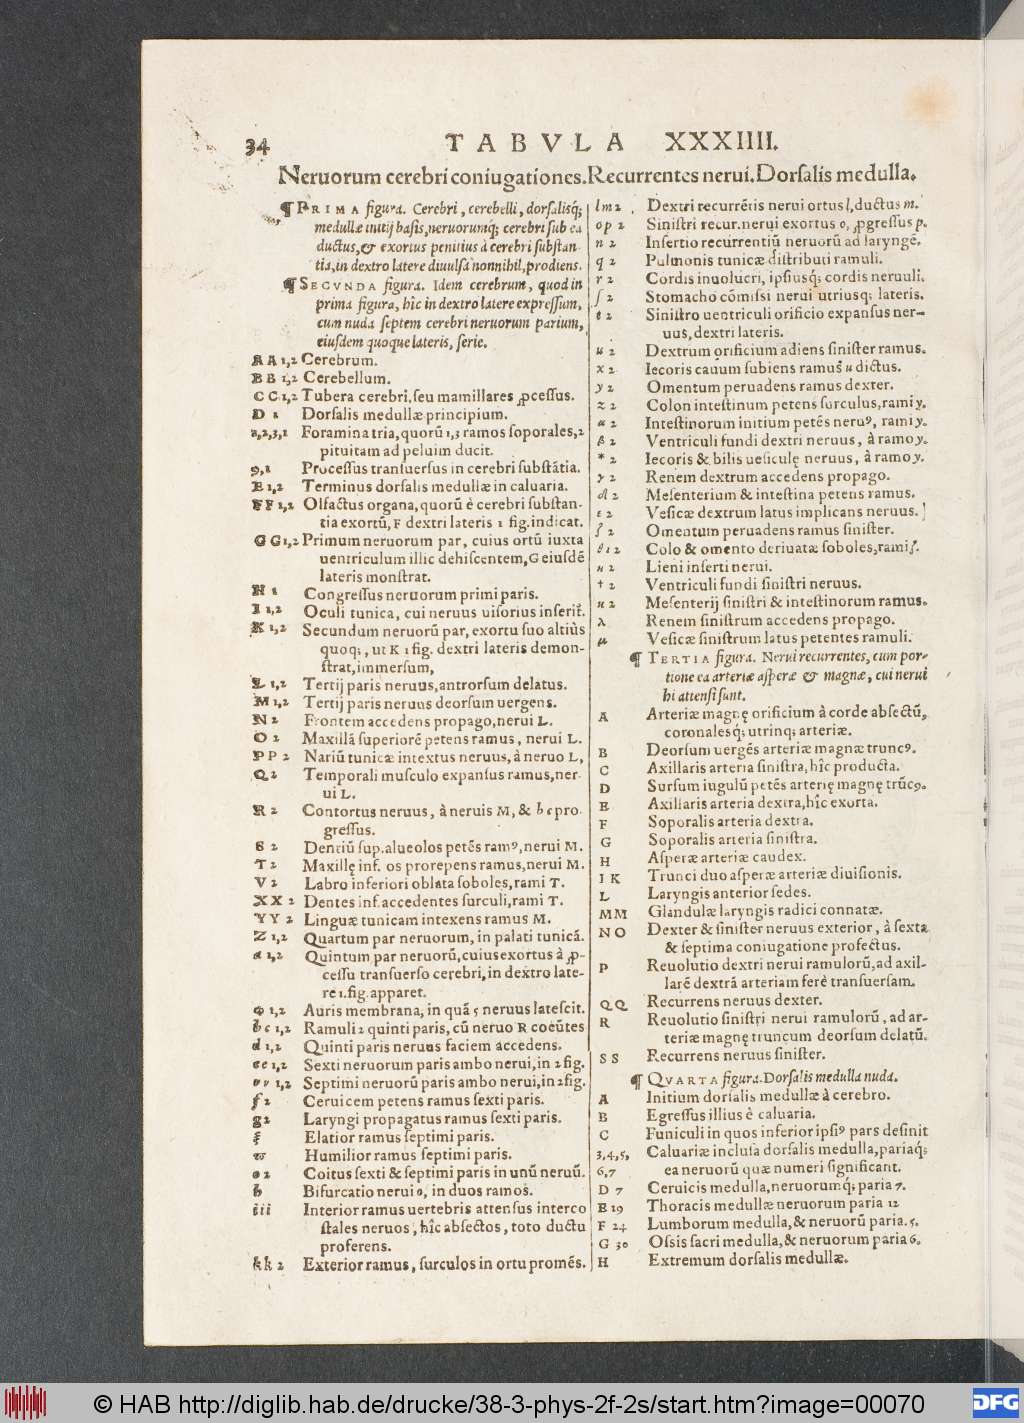 34
TABVLA XXXIIII.
Neruorum cerebri coniugationes. Recurrentes nerui. Dorſalis medulla.
¶ PRIMA figura. Cerebri, cerebelli, dorſalisq́;
medullæ initij baſis, neruorumq́; cerebri ſub ea
ductus, & exortus penitius à cerebri ſubſtan-
tia, in dextro latere diuulſa nonnihil, prodiens.
¶ SECVNDA figura. Idem cerebrum, quod in
prima figura, hîc in dextro latere expreſſum,
cum nuda ſeptem cerebri neruorum parium,
eiuſdem quoque lateris, ſerie.
A A 1,2 Cerebrum.
B B 1,2 Cerebellum.
C C 1,2 Tubera cerebri, ſeu mamillares ꝓceſſus.
D 1 Dorſalis medullæ principium.
a,2,3,1 Foramina tria, quorū 1,3 ramos ſoporales, 2
pituitam ad peluim ducit.
9,1 Proceſſus tranſuerſus in cerebri ſubſtātia.
E 1,2 Terminus dorſalis medullæ in caluaria.
F F 1,2 Olfactus organa, quorū è cerebri ſubſtan-
tia exortū, F dextri lateris 1 fig. indicat.
G G 1,2 Primum neruorum par, cuius ortū iuxta
uentriculum illic dehiſcentem, G eiuſdē
lateris monſtrat.
H 1 Congreſſus neruorum primi paris.
I 1,2 Oculi tunica, cui neruus uiſorius inſerit̃.
K 1,2 Secundum neruorū par, exortu ſuo altiùs
quoq;, ut K 1 fig. dextri lateris demon-
ſtrat, immerſum,
L 1,2 Tertij paris neruus, antrorſum delatus.
M 1,2 Tertij paris neruus deorſum uergens.
N 2 Frontem accedens propago, nerui L.
O 2 Maxillā ſuperiorē petens ramus, nerui L.
P P 2 Nariū tunicæ intextus neruus, à neruo L,
Q 2 Temporali muſculo expanſus ramus, ner-
ui L.
R 2 Contortus neruus, à neruis M, & b c pro
greſſus.
S 2 Dentiū ſup. alueolos petēs ramꝰ, nerui M.
T 2 Maxillę inf. os prorepens ramus, nerui M.
V 2 Labro inferiori oblata ſoboles, rami T.
X X 2 Dentes inf. accedentes ſurculi, rami T.
Y Y 2 Linguæ tunicam intexens ramus M.
Z 1,2 Quartum par neruorum, in palati tunicā.
a 1,2 Quintum par neruorū, cuius exortus à ꝓ-
ceſſu tranſuerſo cerebri, in dextro late-
re 1. fig. apparet.
φ 1,2 Auris membrana, in quā 5 neruus lateſcit.
b c 1,2 Ramuli 2 quinti paris, cū neruo R coeūtes
d 1,2 Quinti paris neruus faciem accedens.
e e 1,2 Sexti neruorum paris ambo nerui, in 2 fig.
v v 1,2 Septimi neruorū paris ambo nerui, in 2 fig.
f 2 Ceruicem petens ramus ſexti paris.
g 2 Laryngi propagatus ramus ſexti paris.
ξ Elatior ramus ſeptimi paris.
ϖ Humilior ramus ſeptimi paris.
o 2 Coitus ſexti & ſeptimi paris in unū neruū.
h Bifurcatio nerui o, in duos ramos.
iii Interior ramus uertebris attenſus interco
ſtales neruos, hîc abſectos, toto ductu
proferens.
k k 2 Exterior ramus, ſurculos in ortu promēs.
l m 2 Dextri recurrētis nerui ortus l, ductus m.
o p 2 Siniſtri recur. nerui exortus o, ꝓgreſſus p.
n 2 Inſertio recurrentiū neruorū ad laryngē.
q 2 Pulmonis tunicæ diſtributi ramuli.
r 2 Cordis inuolucri, ipſiusq́; cordis neruuli.
ſ 2 Stomacho cōmiſsi nerui utriusq; lateris.
t 2 Siniſtro uentriculi orificio expanſus ner-
uus, dextri lateris.
u 2 Dextrum orificium adiens ſiniſter ramus.
x 2 Iecoris cauum ſubiens ramus u dictus.
y 2 Omentum peruadens ramus dexter.
z 2 Colon inteſtinum petens ſurculus, rami y.
α 2 Inteſtinorum initium petēs neruꝰ, rami y.
β 2 Ventriculi fundi dextri neruus, à ramo y.
* 2 Iecoris & bilis ueſiculę neruus, à ramo y.
γ 2 Renem dextrum accedens propago.
δ 2 Meſenterium & inteſtina petens ramus.
ε 2 Veſicæ dextrum latus implicans neruus.
ζ 2 Omentum peruadens ramus ſiniſter.
θ 1 2 Colo & omento deriuatæ ſoboles, rami ζ.
η 2 Lieni inſerti nerui.
† 2 Ventriculi fundi ſiniſtri neruus.
κ 2 Meſenterij ſiniſtri & inteſtinorum ramus.
λ Renem ſiniſtrum accedens propago.
μ Veſicæ ſiniſtrum latus petentes ramuli.
¶ TERTIA figura. Nerui recurrentes, cum por-
tione ea arteriæ aſperæ & magnæ, cui nerui
hi attenſi ſunt.
A Arteriæ magnę orificium à corde abſectū,
coronalesq́; utrinq; arteriæ.
B Deorſum uergēs arteriæ magnæ truncꝰ.
C Axillaris arteria ſiniſtra, hîc producta.
D Surſum iugulū petēs arterię magnę trūcꝰ.
E Axillaris arteria dextra, hîc exorta.
F Soporalis arteria dextra.
G Soporalis arteria ſiniſtra.
H Aſperæ arteriæ caudex.
I K Trunci duo aſperæ arteriæ diuiſionis.
L Laryngis anterior ſedes.
MM Glandulæ laryngis radici connatæ.
N O Dexter & ſiniſter neruus exterior, à ſexta
& ſeptima coniugatione profectus.
P Reuolutio dextri nerui ramulorū, ad axil-
larē dextrā arteriam ferè tranſuerſam.
Q Q Recurrens neruus dexter.
R Reuolutio ſiniſtri nerui ramulorū, ad ar-
teriæ magnę truncum deorſum delatū.
S S Recurrens neruus ſiniſter.
¶ QVARTA figura. Dorſalis medulla nuda.
A Initium dorſalis medullæ à cerebro.
B Egreſſus illius è caluaria.
C Funiculi in quos inferior ipſiꝰ pars deſinit
3,4,5, Caluariæ incluſa dorſalis medulla, pariaq́;
6,7 ea neruorū quæ numeri ſignificant.
D 7 Ceruicis medulla, neruorumq́; paria 7.
E 19 Thoracis medullæ neruorum paria 12
F 24 Lumborum medulla, & neruorū paria. 5.
G 30 Oſsis ſacri medulla, & neruorum paria 6.
H Extremum dorſalis medullæ.
© HAB http://diglib.hab.de/drucke/38-3-phys-2f-2s/start.htm?image=00070
DFG